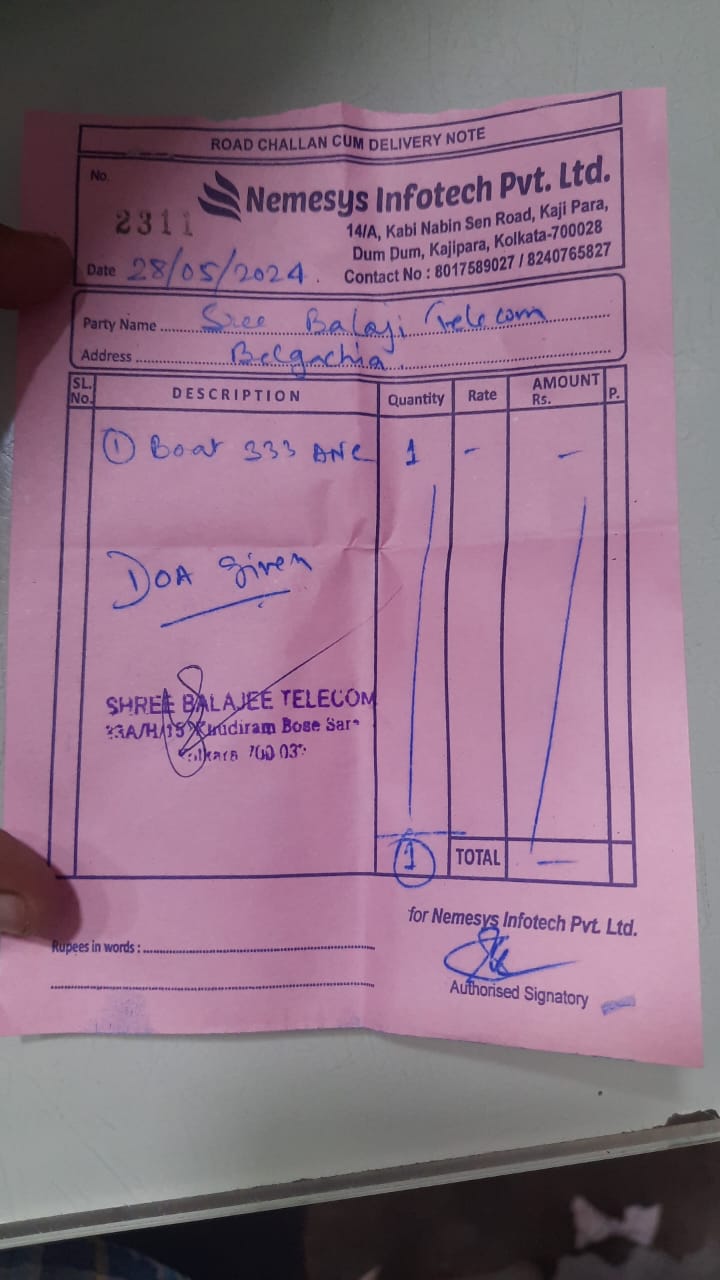 ROAD CHALLAN CUM DELIVERY NOTE
No.
2311
Nemesys Infotech Pvt. Ltd.
14/A, Kabi Nabin Sen Road, Kaji Para,
Dum Dum, Kajipara, Kolkata-700028
Contact No : 8017589027 / 8240765827
Date 28/05/2024.
Party Name Sree Balaji Telecom
Address Belgachia.
SL. No. DESCRIPTION Quantity Rate AMOUNT Rs. P.
① Boat 333 ANC 1 - -
DOA given
SHREE BALAJEE TELECOM
Khudiram Bose
1 TOTAL -
for Nemesys Infotech Pvt. Ltd.
Rupees in words :
Authorised Signatory